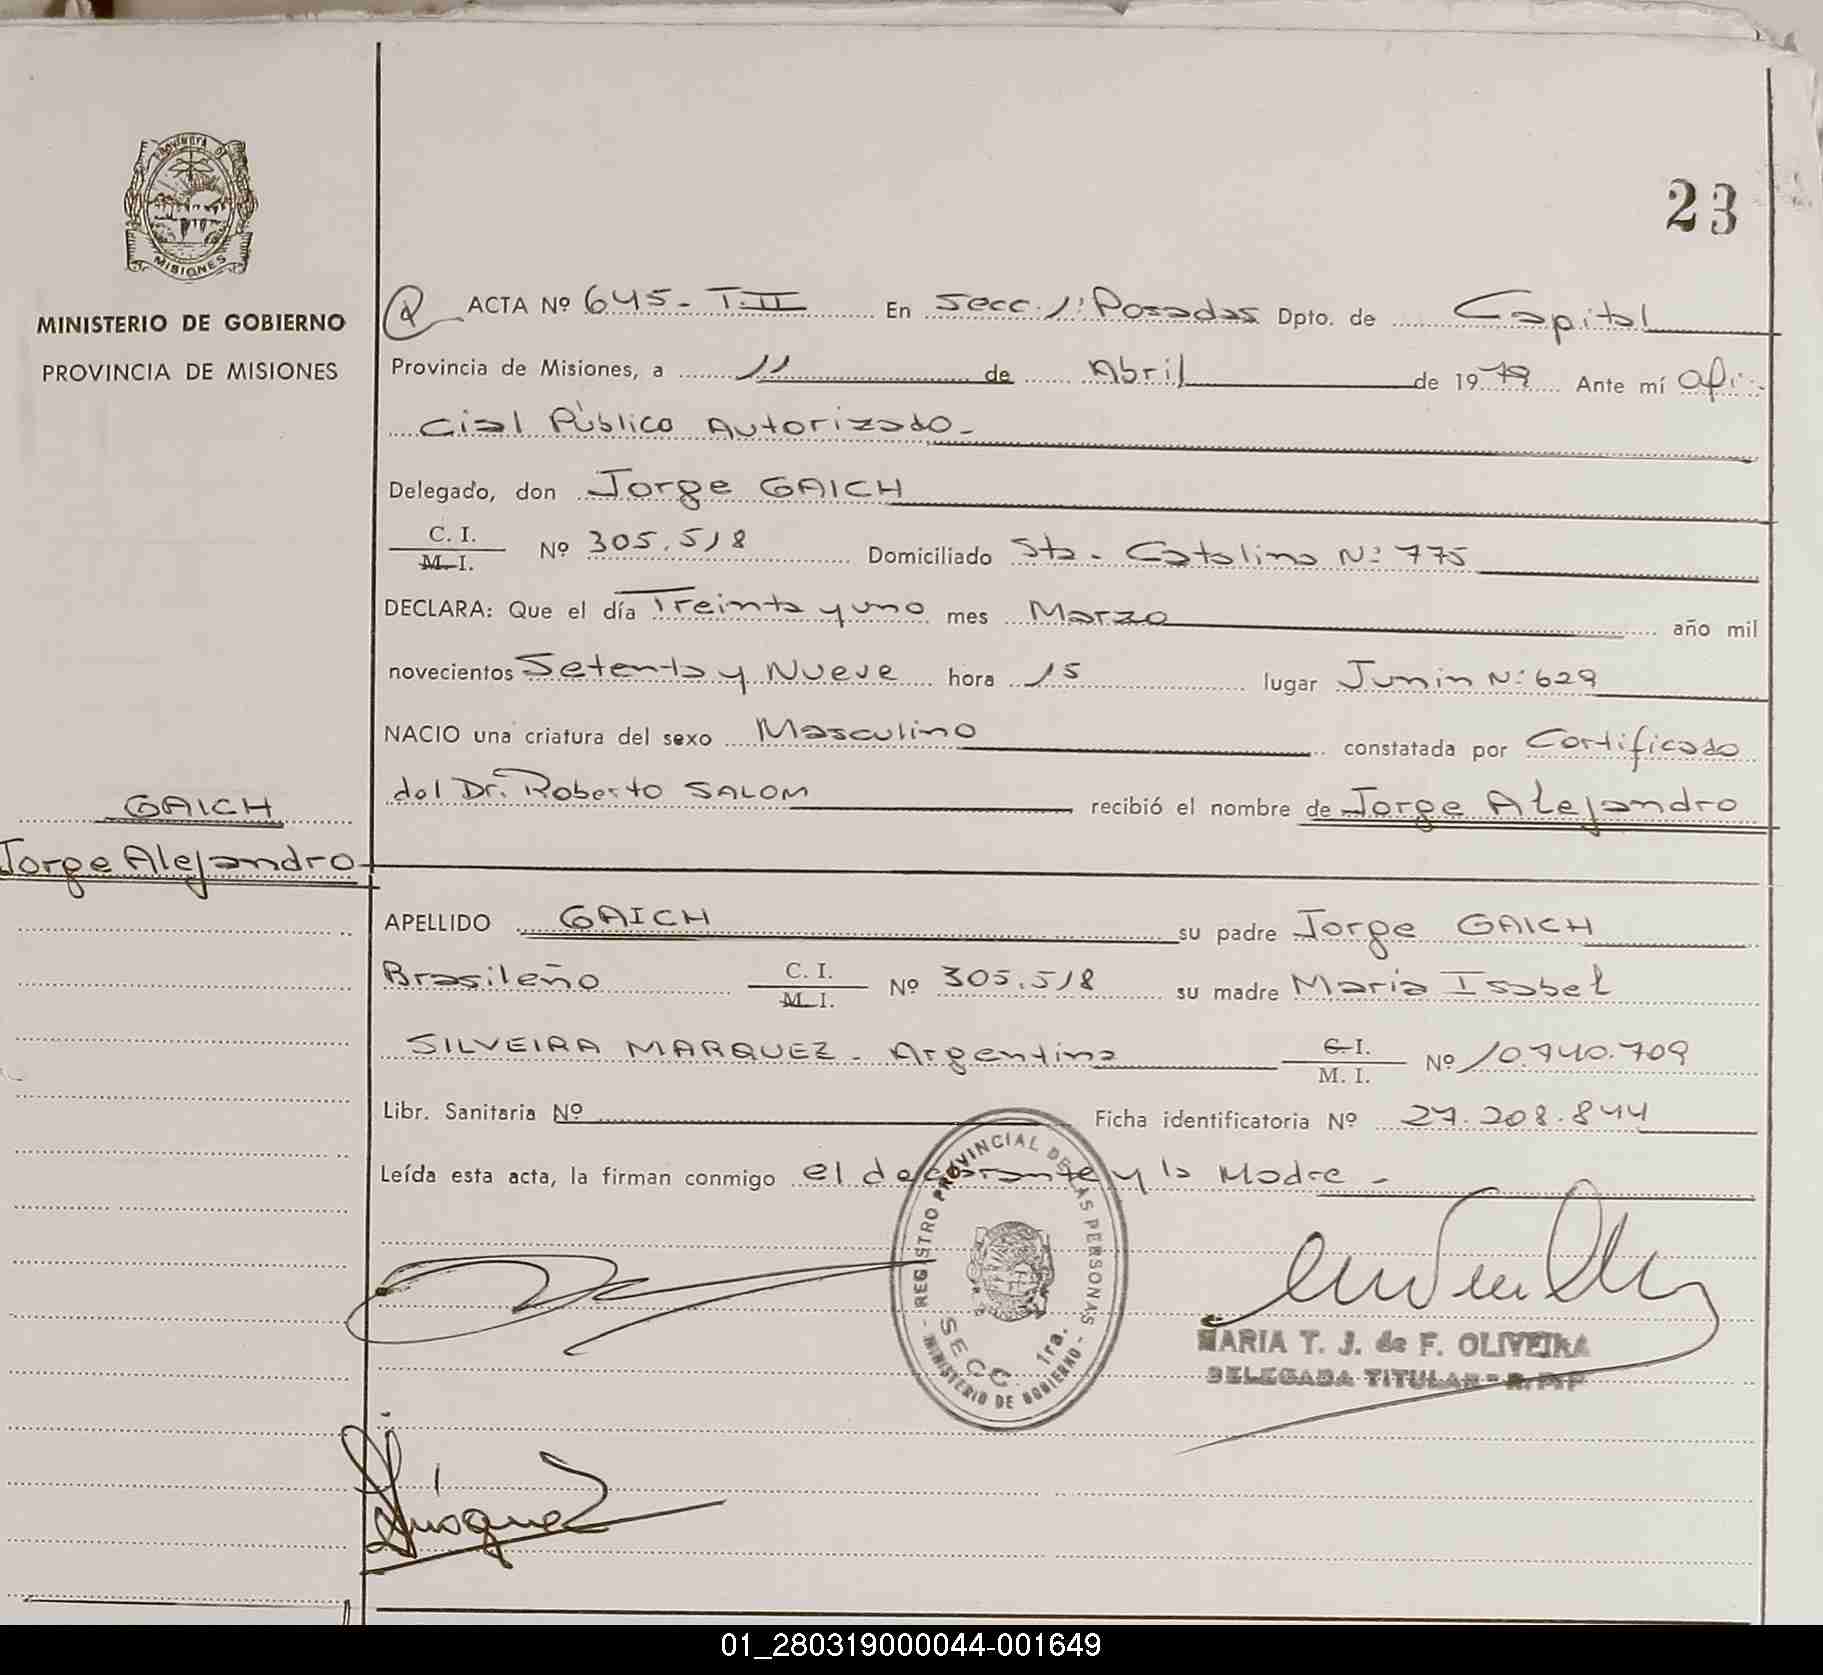 23
PROVINCIA DE
MISIONES
MINISTERIO DE GOBIERNO
PROVINCIA DE MISIONES
ACTA Nº 645 - T. II En Secc. 1ª Posadas Dpto. de Capital
Provincia de Misiones, a 11 de Abril de 1979 Ante mí Ofi-
cial Público Autorizado -
Delegado, don Jorge GAICH
C. I.
M. I. Nº 305.518 Domiciliado Sta. Catalina Nº 775
DECLARA: Que el día Treinta y uno mes Marzo año mil
novecientos Setenta y Nueve hora 15 lugar Junin Nº 629
NACIO una criatura del sexo Masculino constatada por Certificado
del Dr. Roberto SALOM recibió el nombre de Jorge Alejandro
GAICH
Jorge Alejandro
APELLIDO GAICH su padre Jorge GAICH
Brasileño C. I. M. I. Nº 305.518 su madre Maria Isabel
SILVEIRA MARQUEZ - Argentina C. I. M. I. Nº 10.740.709
Libr. Sanitaria Nº Ficha identificatoria Nº 27.208.844
Leída esta acta, la firman conmigo el declarante y la Madre -
REGISTRO PROVINCIAL DE LAS PERSONAS
SECC. 1ra.
- MINISTERIO DE GOBIERNO -
MARIA T. J. de F. OLIVEIRA
DELEGADA TITULAR - R. P. P
01_280319000044-001649